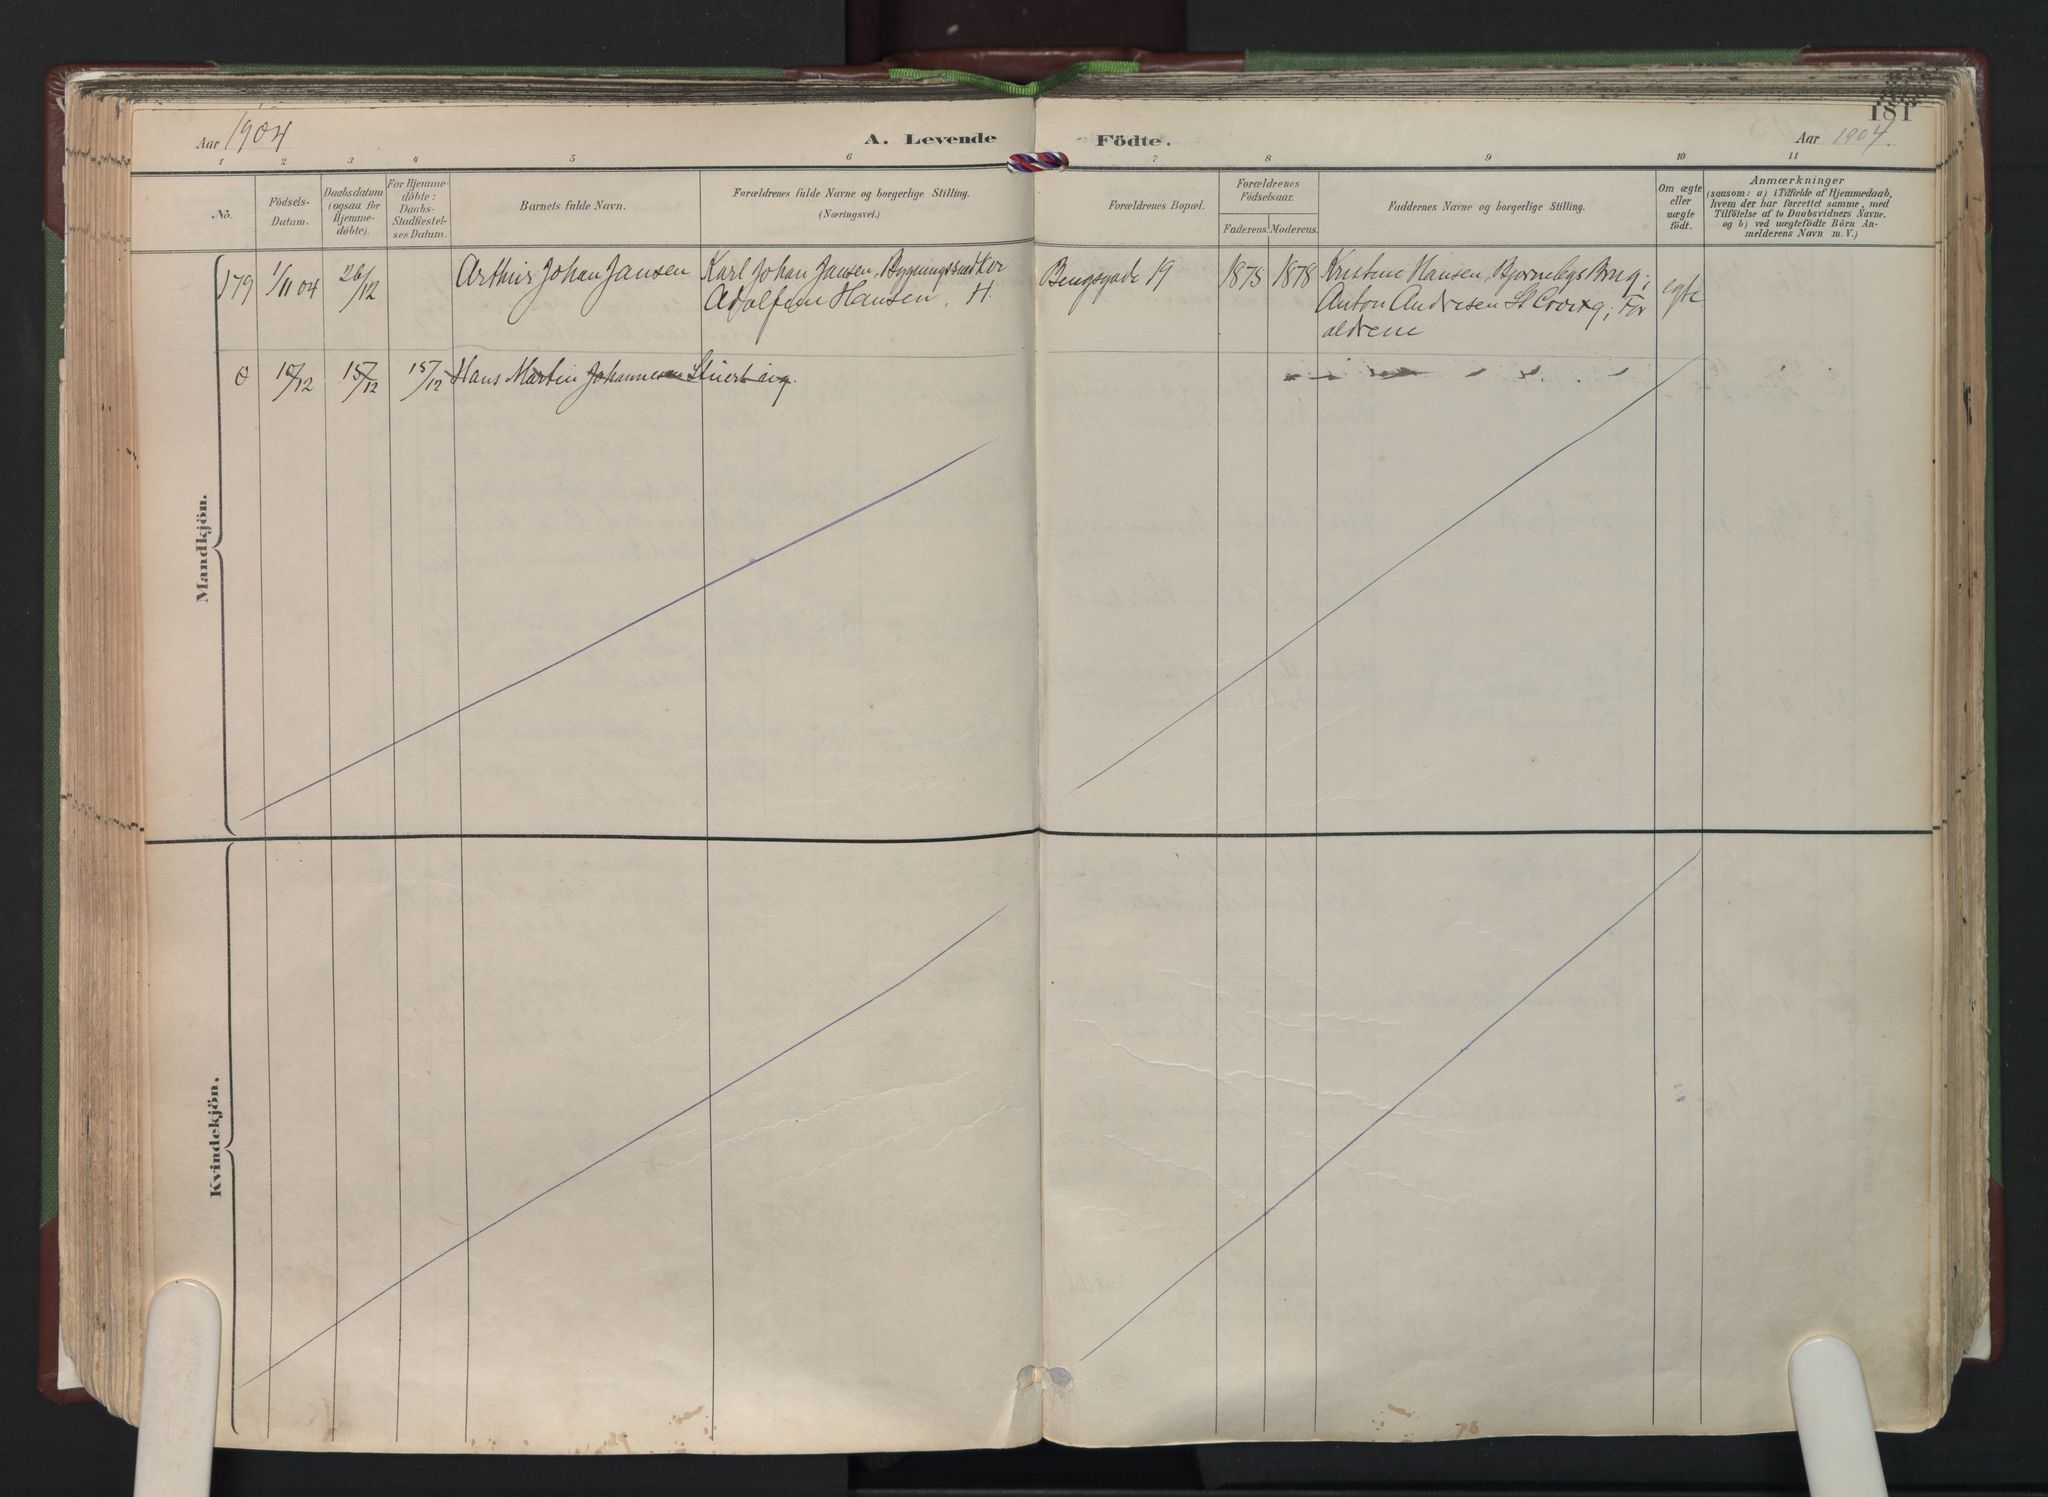 181
Aar 1904
A. Levende Födte.
Aar 1904.
1 2 3 4 5 6 7 8 9 10 11
No.
Födsels-
Datum.
Daabsdatum
(ogsaa for
Hjemme-
döbte).
For Hjemme-
döbte:
Daabs-
Stadfæstel-
ses Datum.
Barnets fulde Navn.
Forældrenes fulde Navne og borgerlige Stilling.
(Næringsvei.)
Forældrenes Bopæl.
Forældrenes
Födselsaar.
Faderens. Moderens.
Faddernes Navne og borgerlige Stilling.
Om ægte
eller
uægte
födt.
Anmærkninger
(saasom: a) i Tilfælde af Hjemmedaab,
hvem der har forrettet samme, med
Tilföielse af to Daabsvidners Navne,
og b) ved uægtefödte Börn An-
melderens Navn m. V.)
Mandkjön.
179 1/11 04 26/12 Arthur Johan Jansen Karl Johan Jansen, Bygningssnedker
Adolfine Hansen. H.
19 1873 1878 Kristine Hansen, Bjørnebys Brug;
Anton Andresen For
ældrene
egte
0 10/12 15/12 15/12 Hans Martin Johannesen
Kvindekjön.